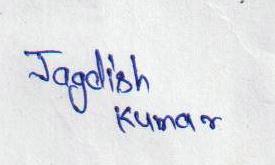 Jagdish
Kumar